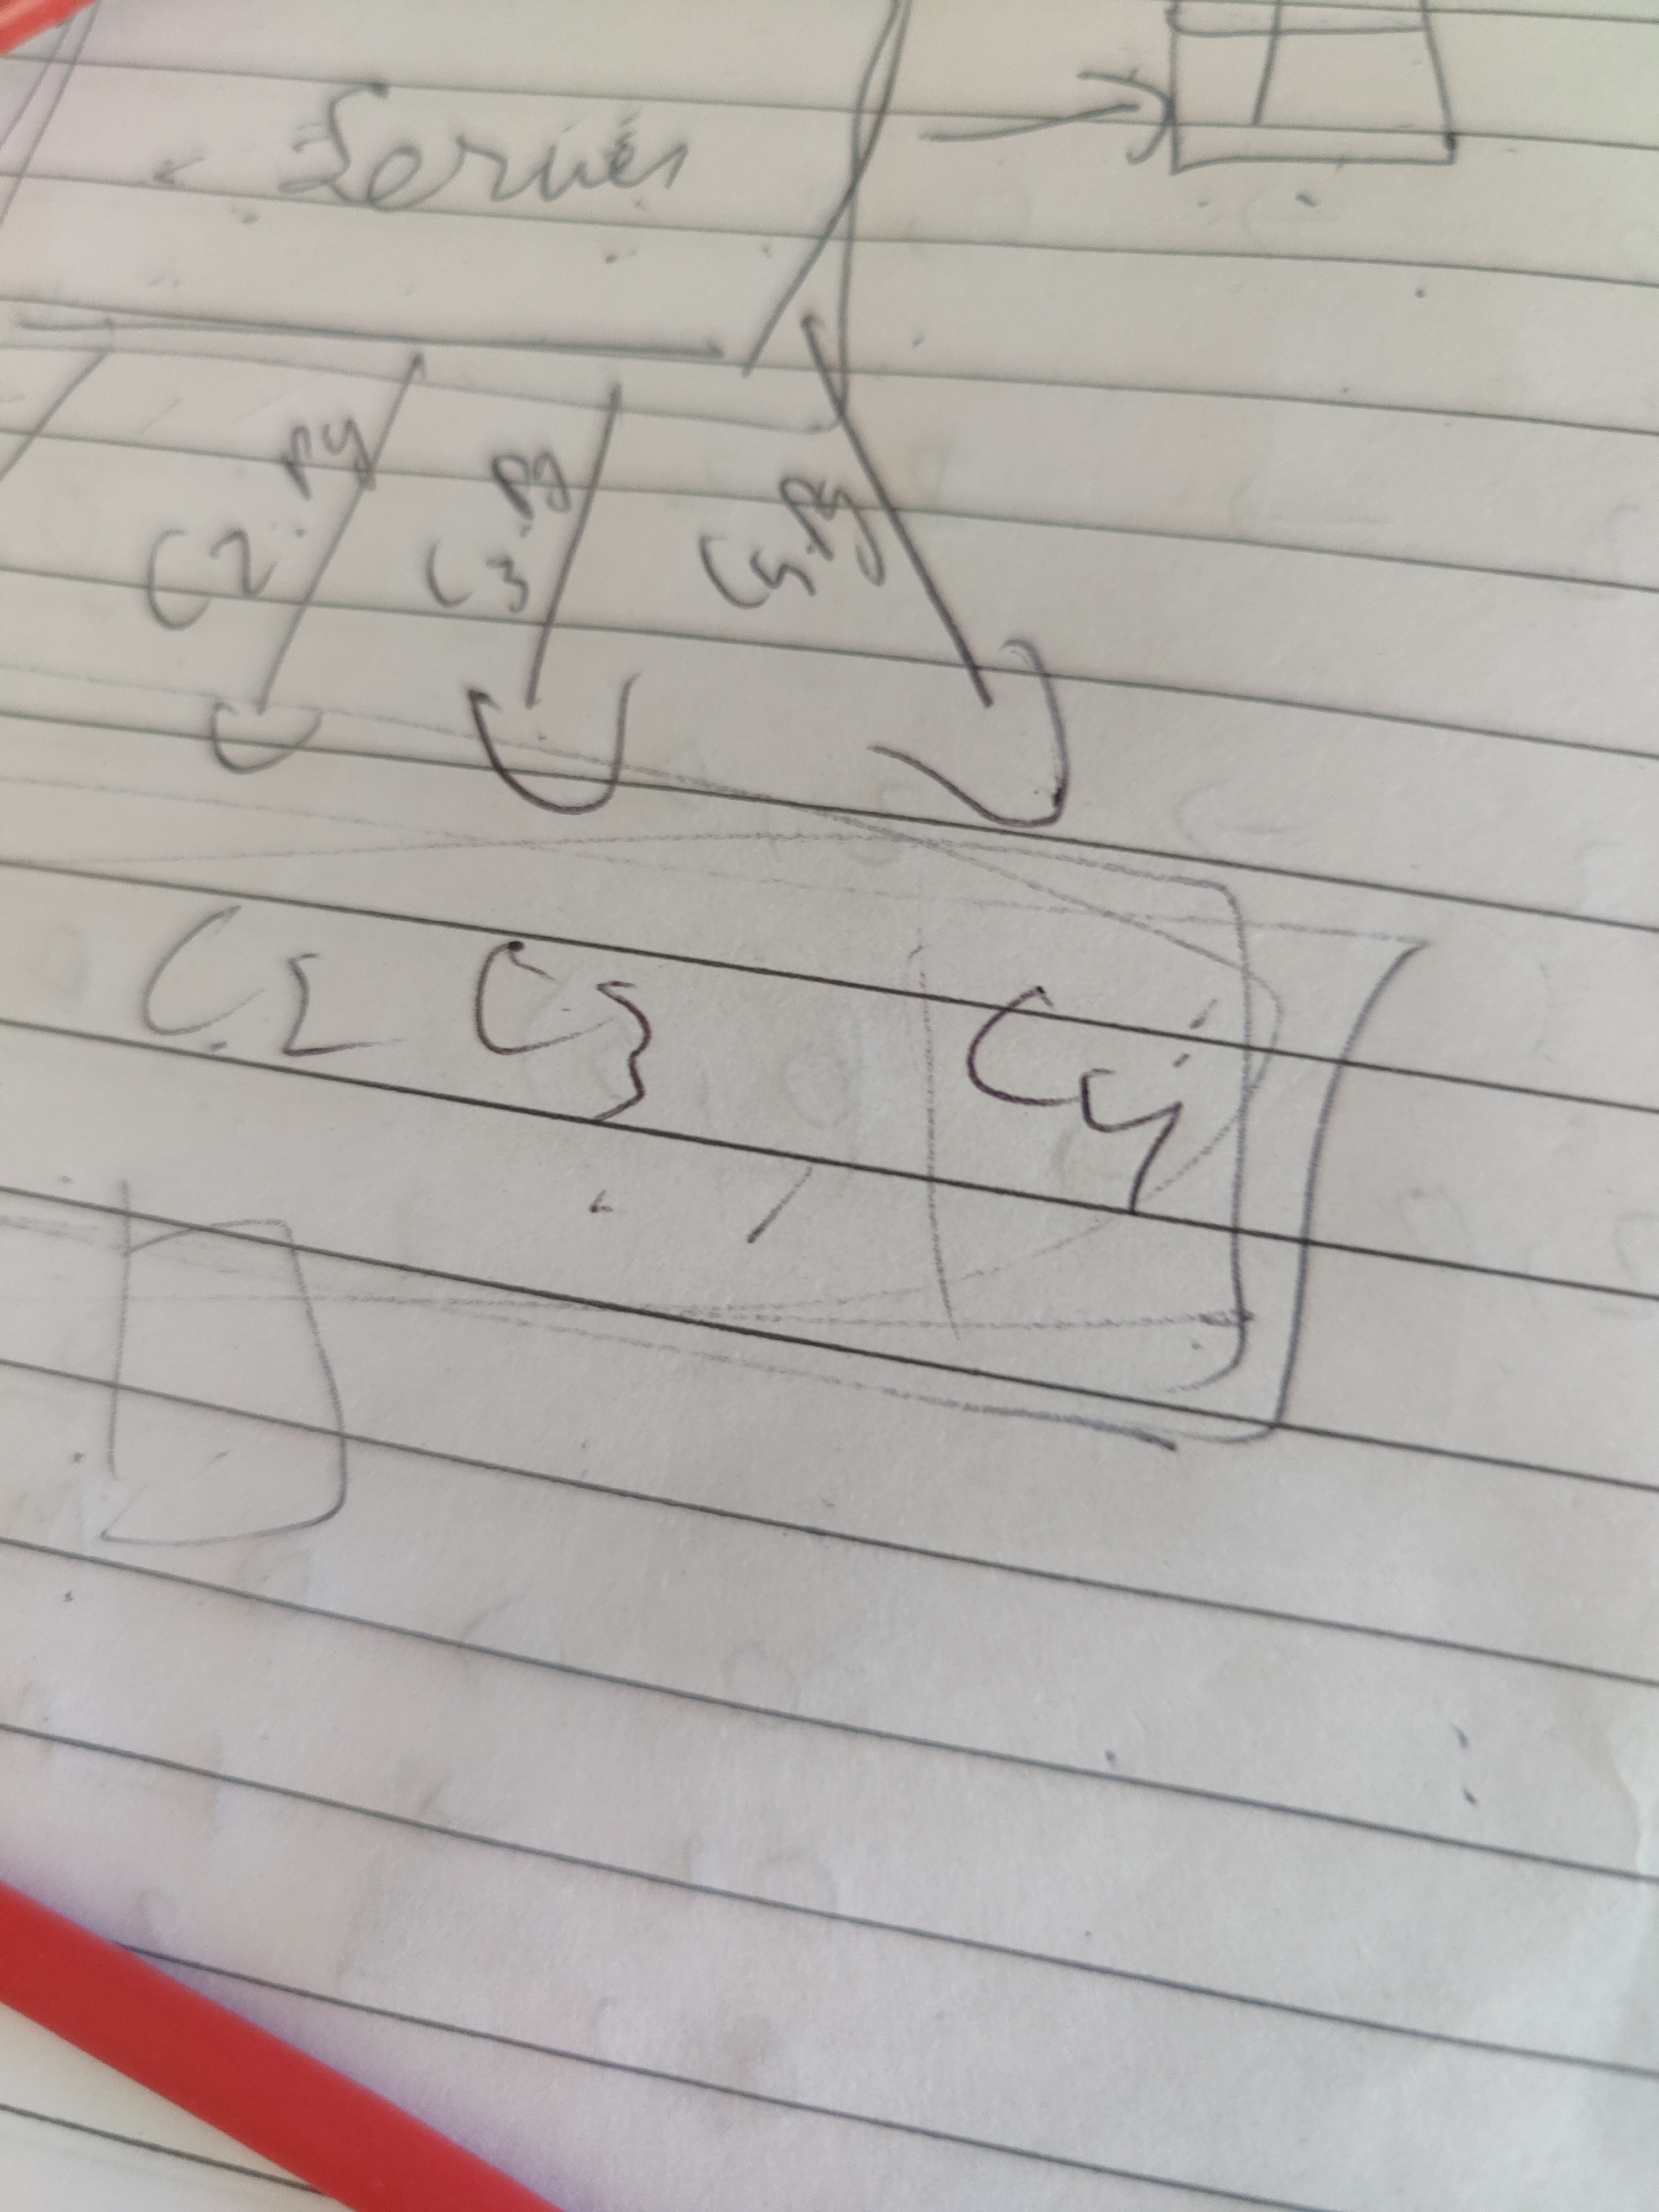 Server
C2.py C3.py C4.py
C2 C3 C4